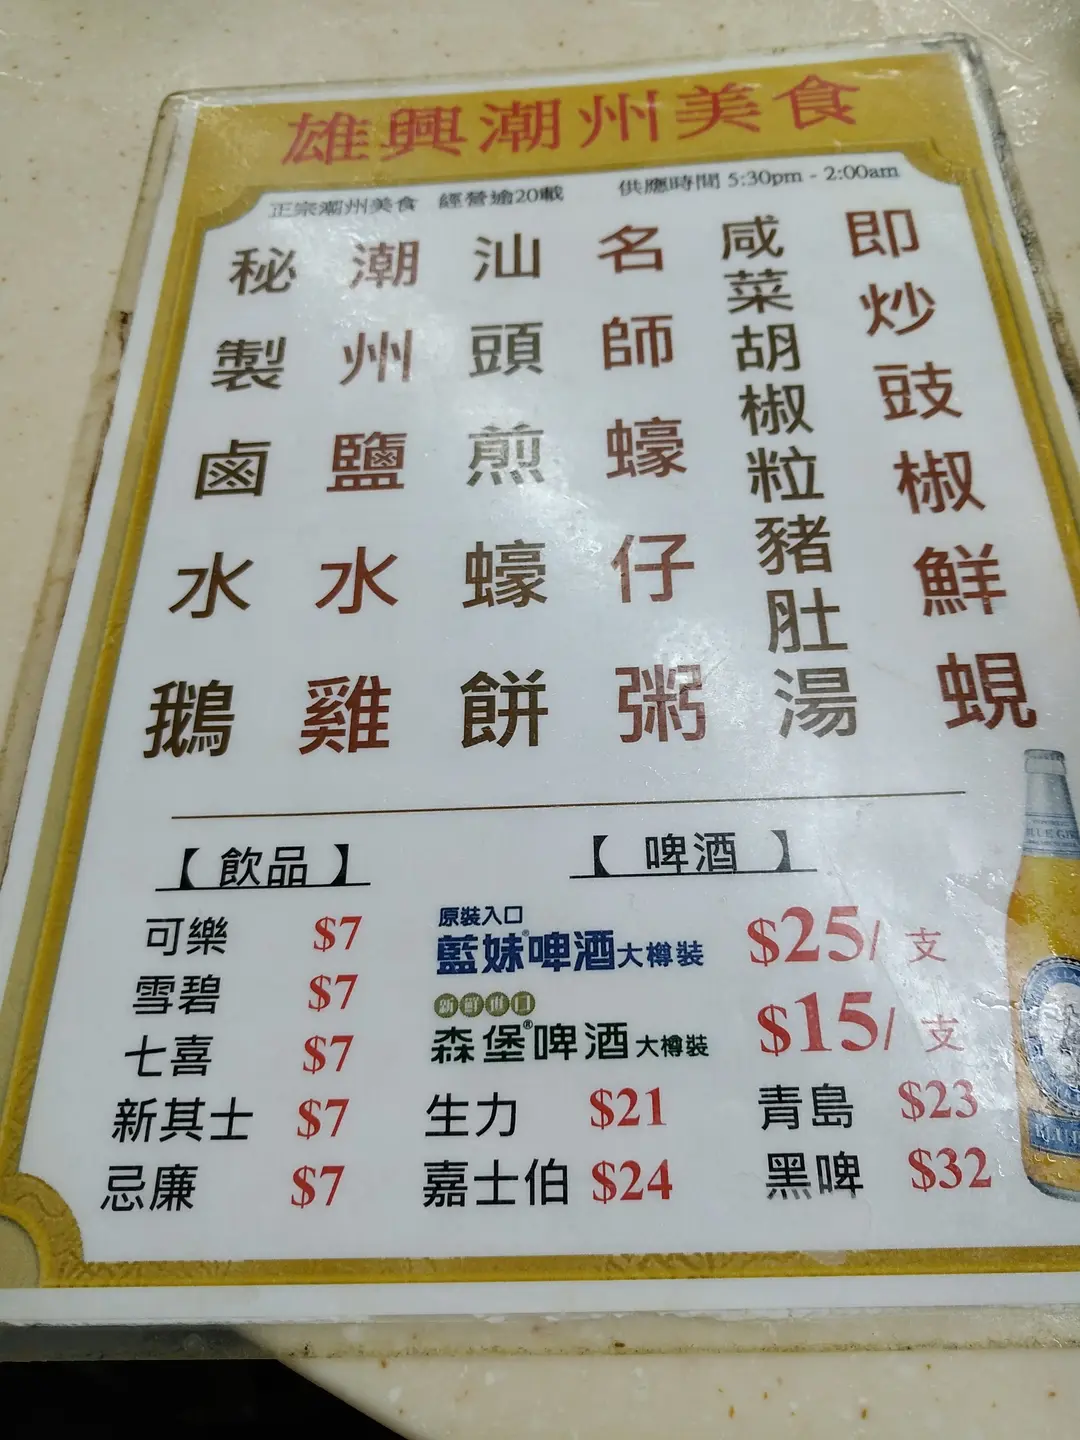 雄興潮州美食
正宗潮州美食 經營逾20載 供應時間 5:30pm - 2:00am
秘製鹵水鵝
潮州鹽水雞
汕頭煎蠔餅
名師蠔仔粥
咸菜胡椒粒豬肚湯
即炒豉椒鮮蜆
【 飲品 】
可樂 $7
雪碧 $7
七喜 $7
新其士 $7
忌廉 $7
【 啤酒 】
原裝入口
藍妹®啤酒大樽裝 $25/支
新鮮進口
森堡®啤酒大樽裝 $15/支
生力 $21 青島 $23
嘉士伯 $24 黑啤 $32